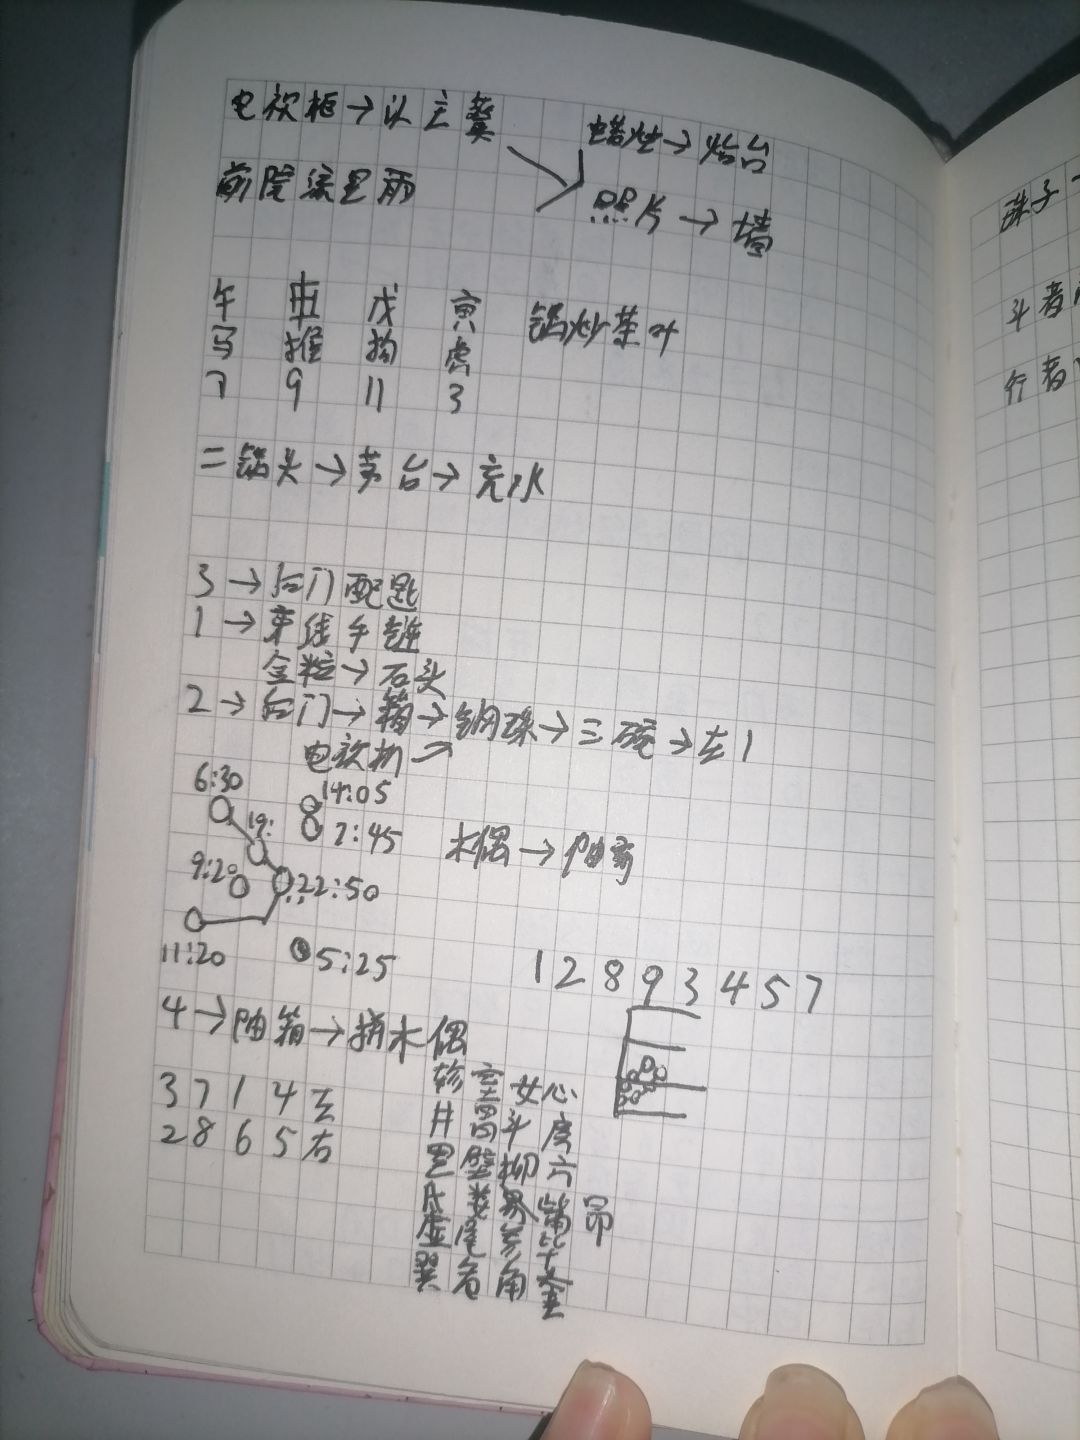 电视柜→认主
蜡烛→烛台
前院 雨
照片→墙
午 戌 寅
马 猴 狗 虎
7 9 11 3
锅炒茶叶
二锅头→茅台→充水
3→后门配匙
1→ 手链
金粒→石头
2→后门→箱→钢珠→三碗→左1
电视机→
6:30 14:05
19: 7:45
木偶→
9:20 22:50
11:20 5:25
1 2 8 9 3 4 5 7
4→ 箱→拼木偶
3 7 1 4 左
2 8 6 5 右
轸 室 女 心
井 胃 斗
壁 柳 亢
氐 娄 昴
虚 尾 毕
翼 危 角 奎
珠子
斗者
行者